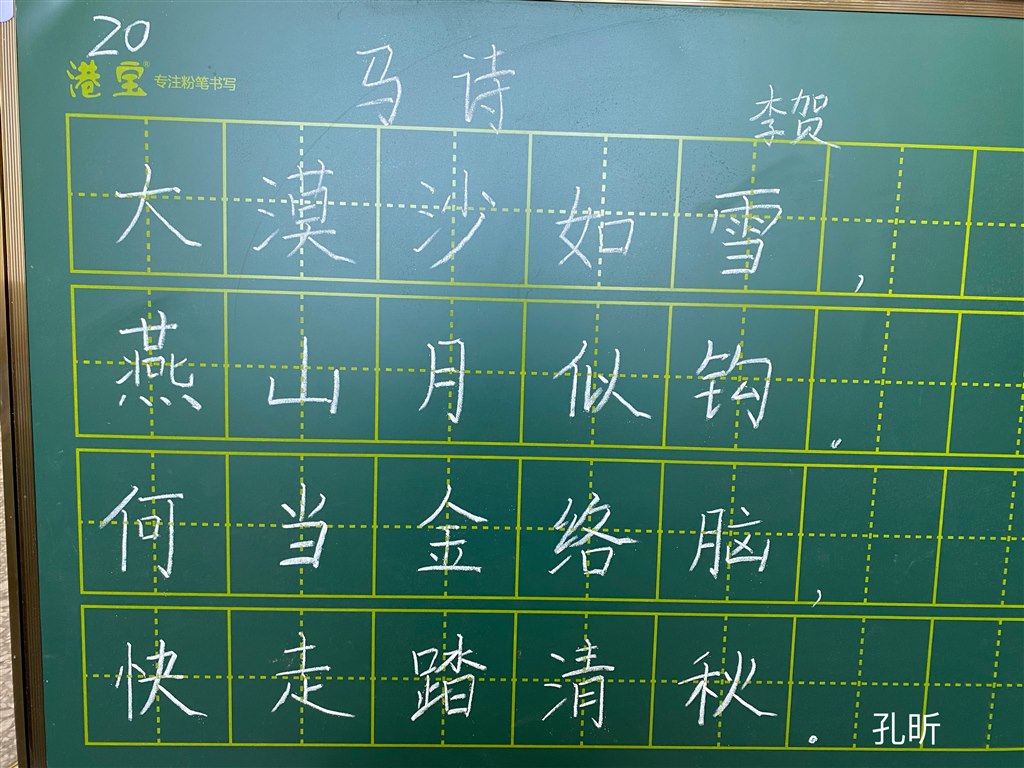 20
港宝® 专注粉笔书写
马诗
李贺
大漠沙如雪，
燕山月似钩。
何当金络脑，
快走踏清秋。
孔昕